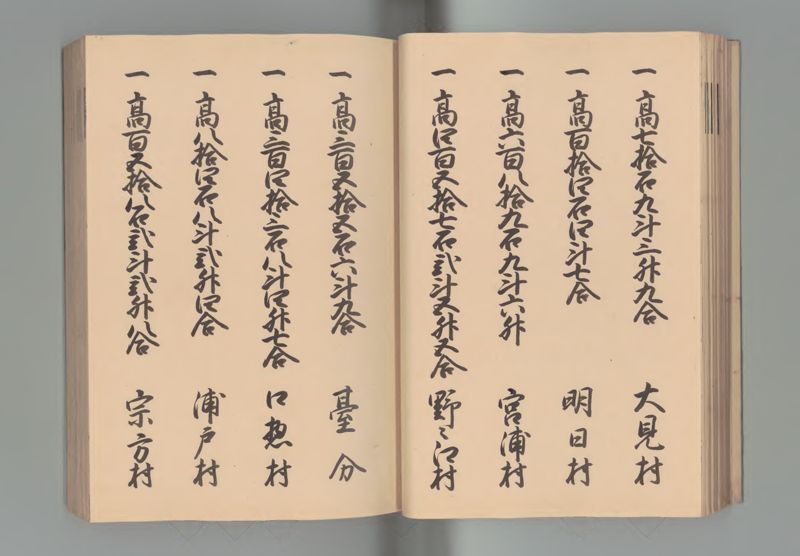 一高七拾石九斗三升九合 大見村
一高百拾四石四斗七合 明日村
一高六百八拾九石九斗六升 宮浦村
一高四百五拾七石弐斗五升五合 野々江村
一高三百五拾五石六斗九合 臺分
一高三百四拾三石八斗四升七合 口惣村
一高八拾四石八斗弐升四合 浦戸村
一高百五拾八石弐斗弐升八合 宗方村